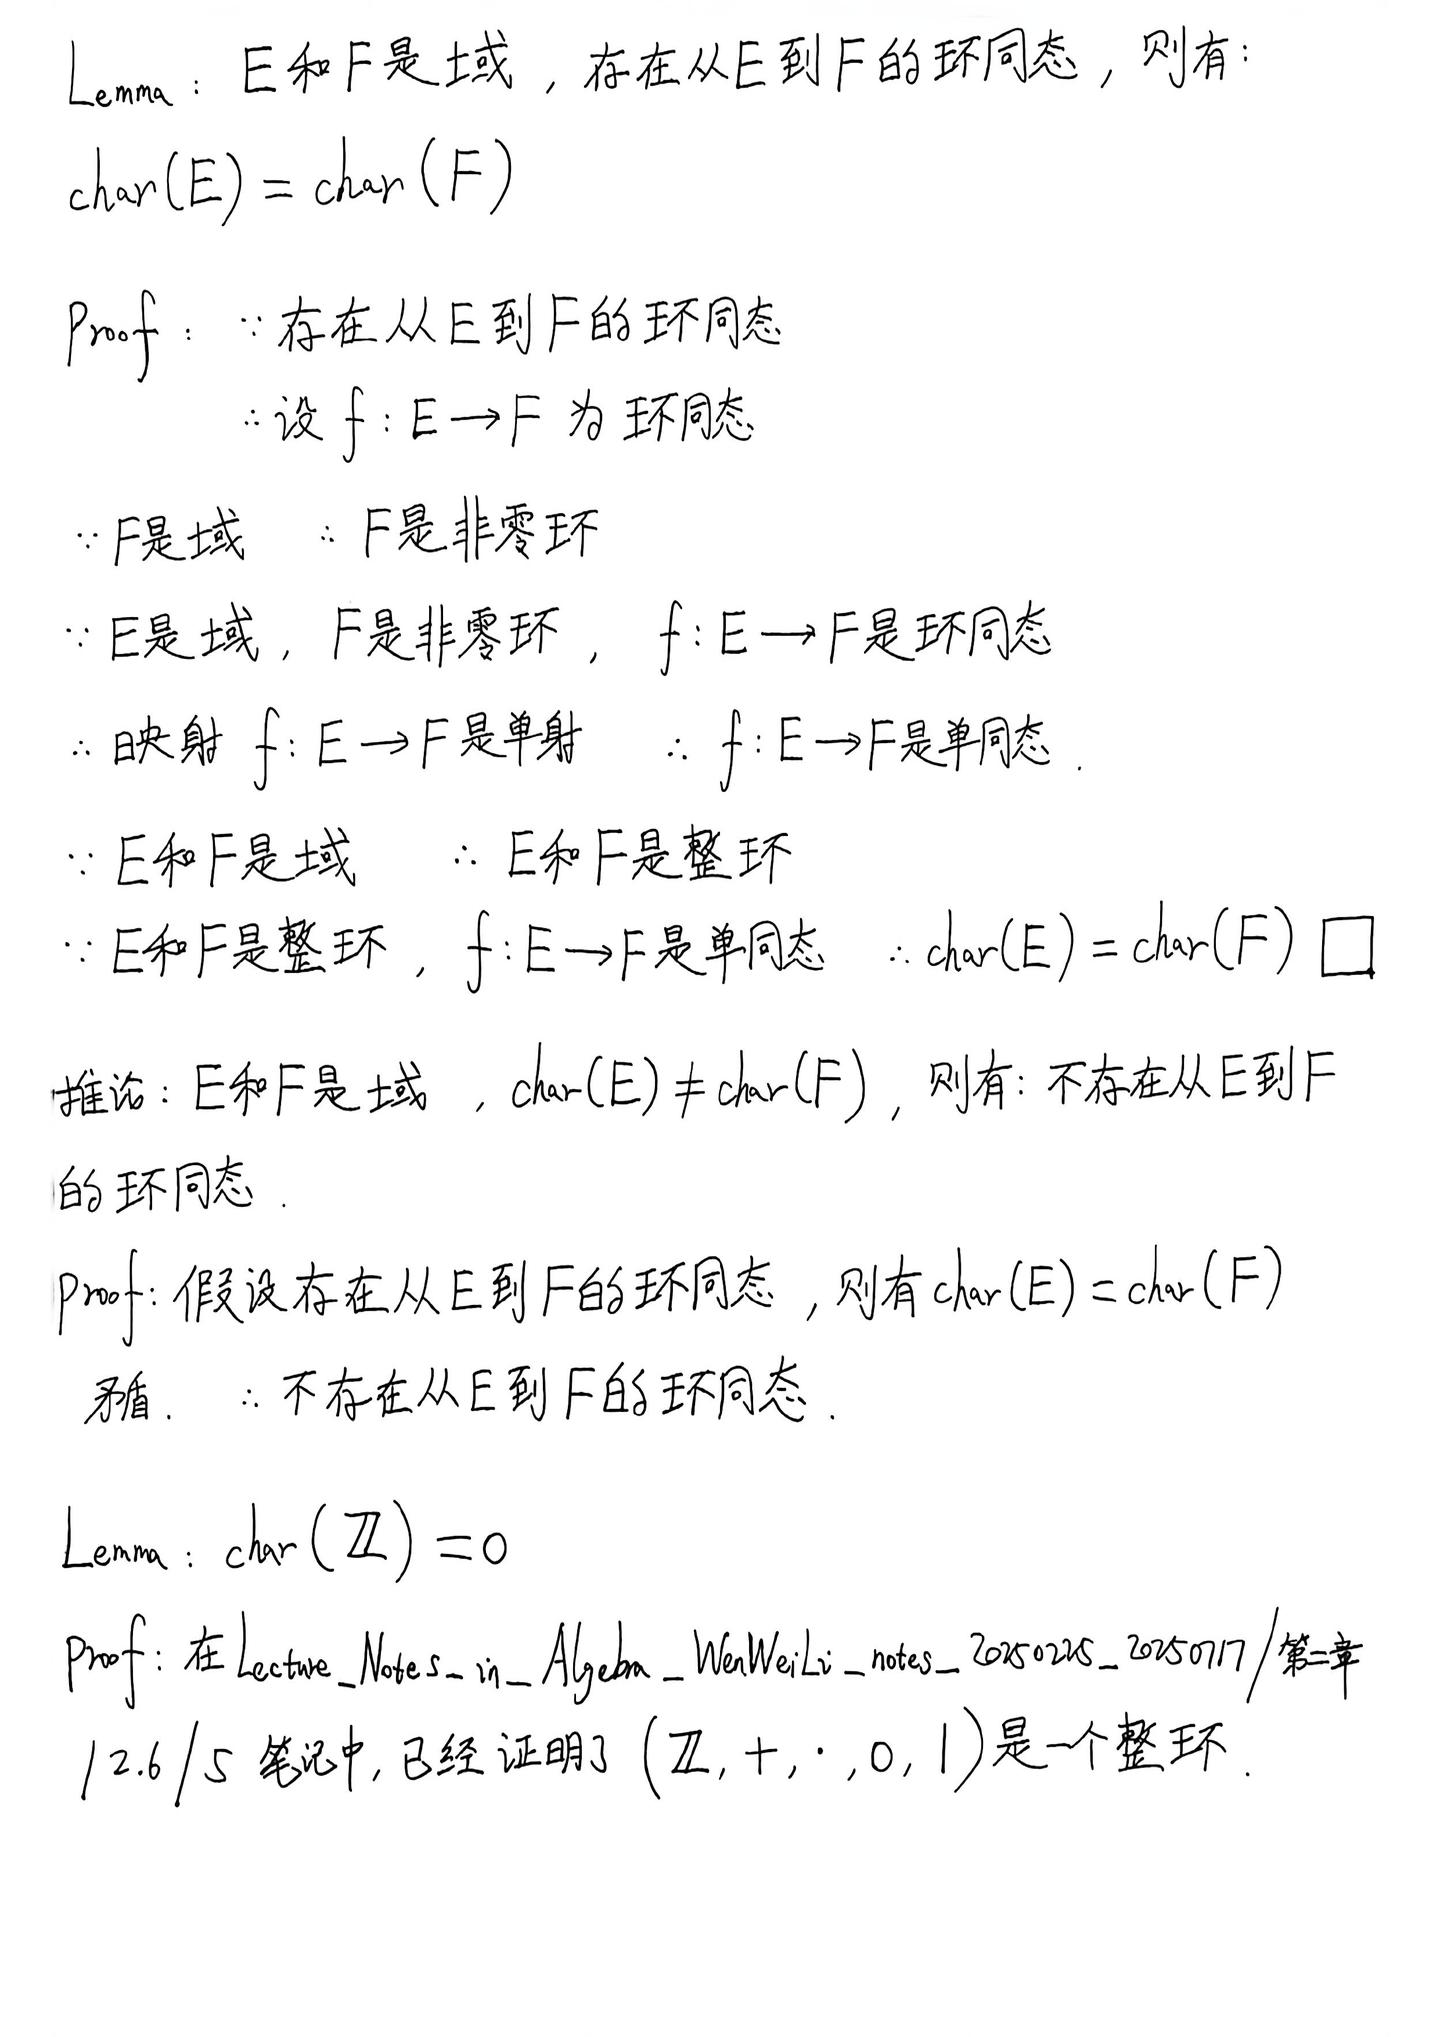 Lemma: E和F是域,存在从E到F的环同态,则有:
char(E)=char(F)
Proof: ∵存在从E到F的环同态
∴设 f:E→F 为 环同态
∵F是域 ∴F是非零环
∵E是域, F是非零环, f:E→F是环同态
∴映射 f:E→F是单射 ∴ f:E→F是单同态.
∵E和F是域 ∴E和F是整环
∵E和F是整环, f:E→F是单同态 ∴char(E)=char(F) □
推论: E和F是域, char(E)≠char(F), 则有: 不存在从E到F
的环同态.
Proof: 假设存在从E到F的环同态, 则有char(E)=char(F)
矛盾. ∴不存在从E到F的环同态.
Lemma: char(ℤ)=0
Proof: 在Lecture_Notes_in_Algebra_WenWeiLi_notes_20250225_20250717/第二章
/2.6/5 笔记中,已经证明了(ℤ,+,·,0,1)是一个整环.